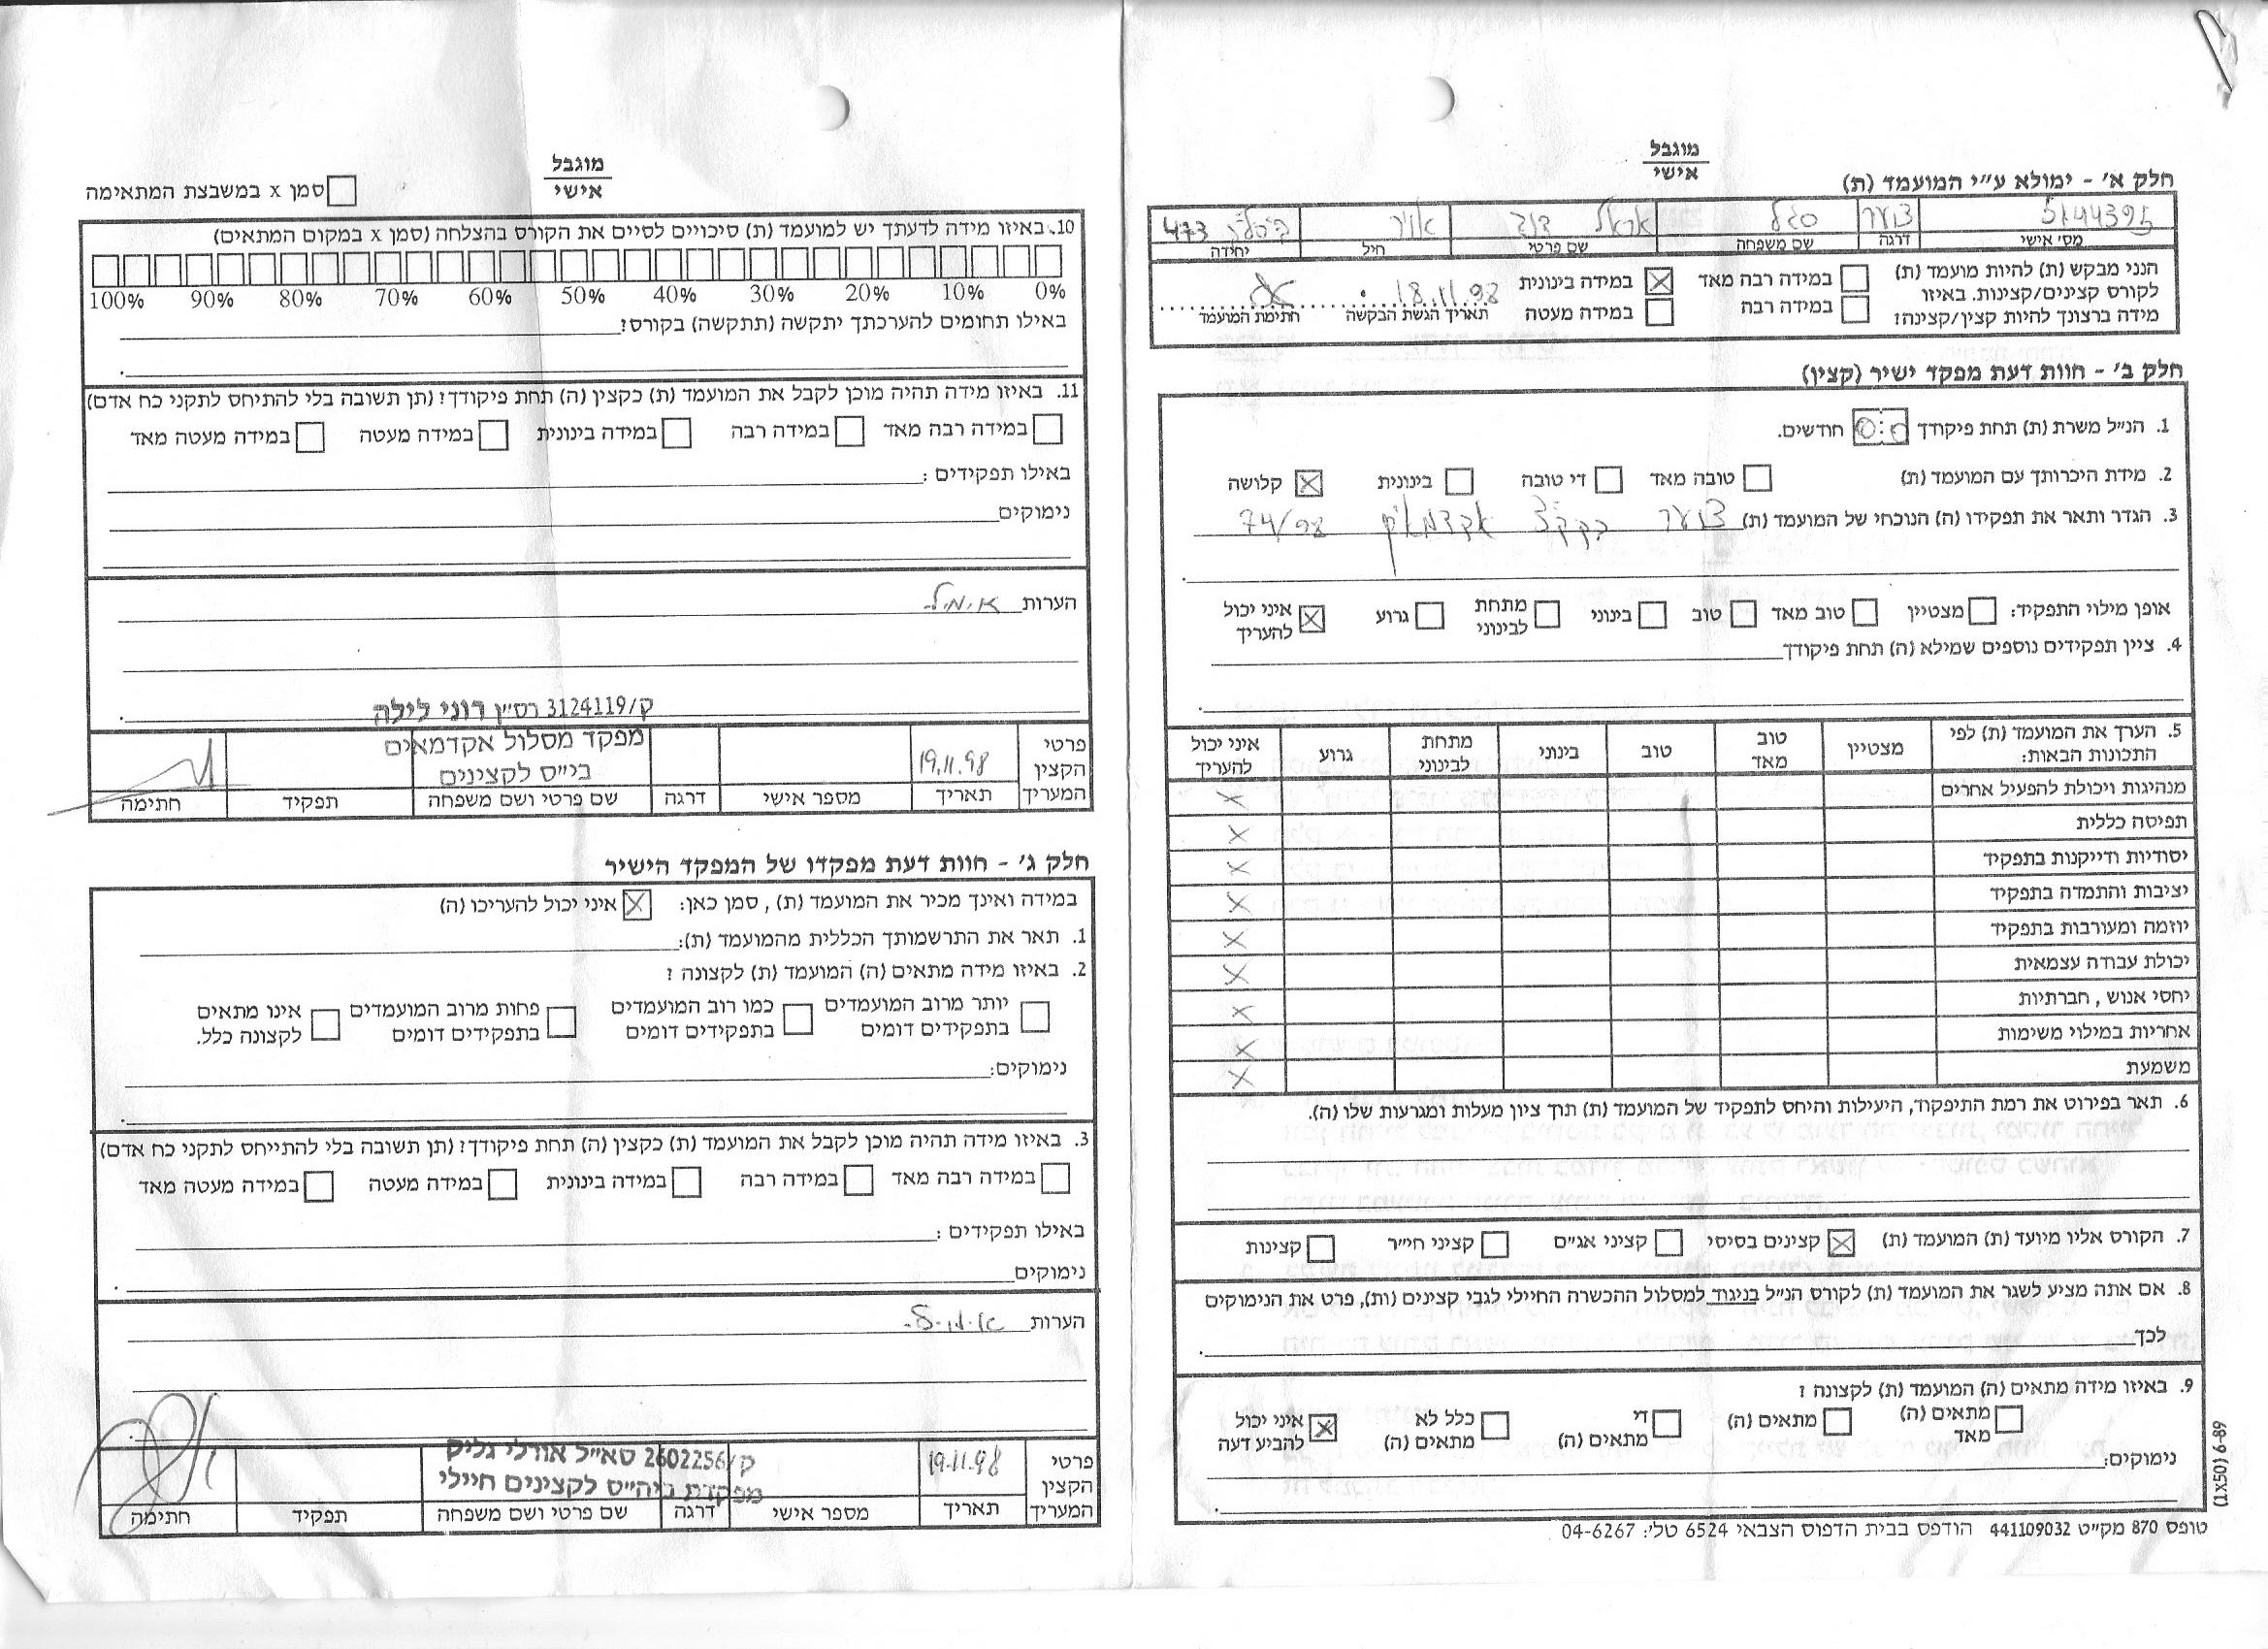 מוגבל
אישי
חלק א׳ - ימולא ע״י המועמד (ת)
5144395 צוער סגל אראל דוב אויר 473
מס׳ אישי דרגה שם משפחה שם פרטי חיל יחידה
הנני מבקש (ת) להיות מועמד (ת) במידה רבה מאד במידה בינונית 18.11.98
לקורס קצינים/קצינות. באיזו
מידה ברצונך להיות קצין/קצינה? במידה רבה במידה מעטה תאריך הגשת הבקשה חתימת המועמד
חלק ב׳ - חוות דעת מפקד ישיר (קצין)
1. הנ״ל משרת (ת) תחת פיקודך 00 חודשים.
2. מידת היכרותך עם המועמד (ת) טובה מאד די טובה בינונית קלושה
3. הגדר ותאר את תפקידו (ה) הנוכחי של המועמד (ת) צוער בקקצ אקדמאים 74/98
אופן מילוי התפקיד: מצטיין טוב מאד טוב בינוני מתחת לבינוני גרוע איני יכול להעריך
4. ציין תפקידים נוספים שמילא (ה) תחת פיקודך
5. הערך את המועמד (ת) לפי התכונות הבאות: מצטיין טוב מאד טוב בינוני מתחת לבינוני גרוע איני יכול להעריך
מנהיגות ויכולת להפעיל אחרים X
תפיסה כללית X
יסודיות ודייקנות בתפקיד X
יציבות והתמדה בתפקיד X
יוזמה ומעורבות בתפקיד X
יכולת עבודה עצמאית X
יחסי אנוש, חברתיות X
אחריות במילוי משימות X
משמעת X
6. תאר בפירוט את רמת התיפקוד, היעילות והיחס לתפקיד של המועמד (ת) תוך ציון מעלות ומגרעות שלו (ה).
7. הקורס אליו מיועד (ת) המועמד (ת) קצינים בסיסי קציני אג״ם קציני חי״ר קצינות
8. אם אתה מציע לשגר את המועמד (ת) לקורס הנ״ל בניגוד למסלול ההכשרה החיילי לגבי קצינים (ות), פרט את הנימוקים
לכך
9. באיזו מידה מתאים (ה) המועמד (ת) לקצונה ?
מתאים (ה) מאד מתאים (ה) די מתאים (ה) כלל לא מתאים (ה) איני יכול להביע דעה
נימוקים:
טופס 870 מק״ט 441109032 הודפס בבית הדפוס הצבאי 6524 טלי: 04-6267
(1x50) 6-89
מוגבל
אישי
סמן x במשבצת המתאימה
10. באיזו מידה לדעתך יש למועמד (ת) סיכויים לסיים את הקורס בהצלחה (סמן x במקום המתאים)
0% 10% 20% 30% 40% 50% 60% 70% 80% 90% 100%
באילו תחומים להערכתך יתקשה (תתקשה) בקורס?
11. באיזו מידה תהיה מוכן לקבל את המועמד (ת) כקצין (ה) תחת פיקודך? (תן תשובה בלי להתיחס לתקני כח אדם)
במידה רבה מאד במידה רבה במידה בינונית במידה מעטה במידה מעטה מאד
באילו תפקידים :
נימוקים
הערות א.י.מ.ל.
ק/3124119 רס״ן רוני לילה
מפקד מסלול אקדמאים
בי״ס לקצינים
פרטי הקצין המעריך 19.11.98
תאריך מספר אישי דרגה שם פרטי ושם משפחה תפקיד חתימה
חלק ג׳ - חוות דעת מפקדו של המפקד הישיר
במידה ואינך מכיר את המועמד (ת), סמן כאן: איני יכול להעריכו (ה)
1. תאר את התרשמותך הכללית מהמועמד (ת):
2. באיזו מידה מתאים (ה) המועמד (ת) לקצונה ?
יותר מרוב המועמדים בתפקידים דומים כמו רוב המועמדים בתפקידים דומים פחות מרוב המועמדים בתפקידים דומים אינו מתאים לקצונה כלל.
נימוקים:
3. באיזו מידה תהיה מוכן לקבל את המועמד (ת) כקצין (ה) תחת פיקודך? (תן תשובה בלי להתייחס לתקני כח אדם)
במידה רבה מאד במידה רבה במידה בינונית במידה מעטה במידה מעטה מאד
באילו תפקידים :
נימוקים
הערות
ק/2602256 סא״ל אורלי גליק
מפקדת ביה״ס לקצינים חיילי
פרטי הקצין המעריך 19.11.98
תאריך מספר אישי דרגה שם פרטי ושם משפחה תפקיד חתימה